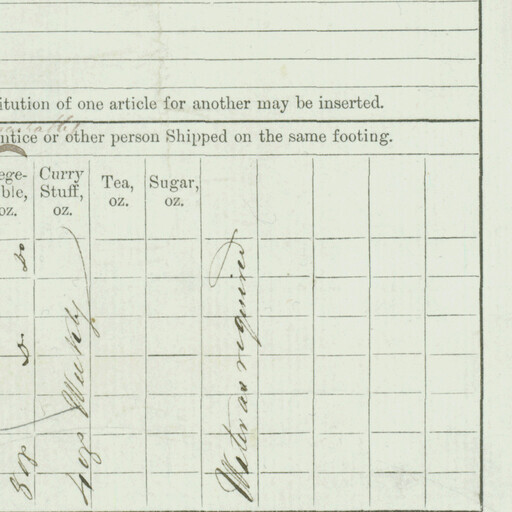 itution of one article for another may be inserted.
ntice or other person Shipped on the same footing.
ege-
ble,
oz.
Curry
Stuff,
oz.
Tea,
oz.
Sugar,
oz.
3 oz
Do
4 oz Weekly
Water as required